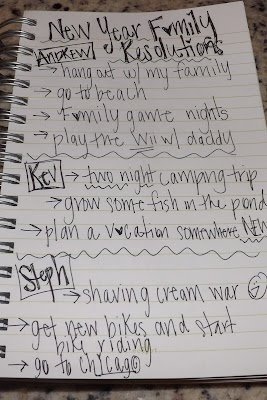 New Year Family
Resolutions
Andrew
→ hang out w/ my family
→ go to beach
→ family game nights
→ play the Wii w/ daddy
Kev → two night camping trip
→ grow some fish in the pond
→ plan a vacation somewhere NEW
Steph
→ shaving cream war
→ get new bikes and start
bike riding.
→ go to Chicago